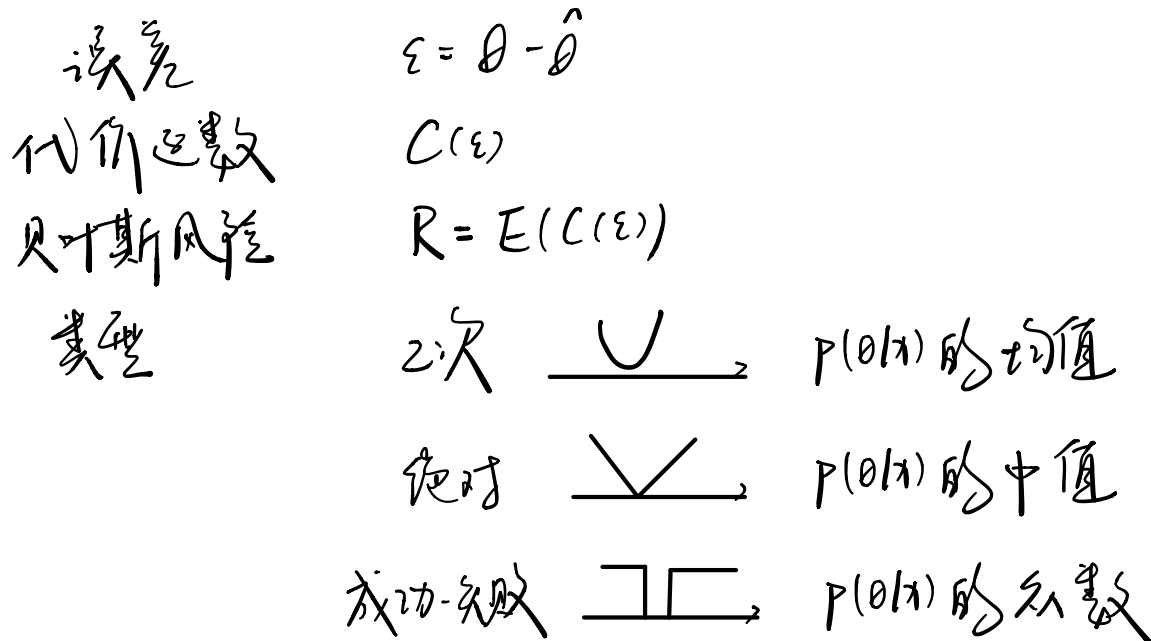 误差 ε = θ - θ̂
代价函数 C(ε)
贝叶斯风险 R = E(C(ε))
类型 2次 p(θ|x) 的均值
绝对 p(θ|x) 的中值
成功-失败 p(θ|x) 的众数